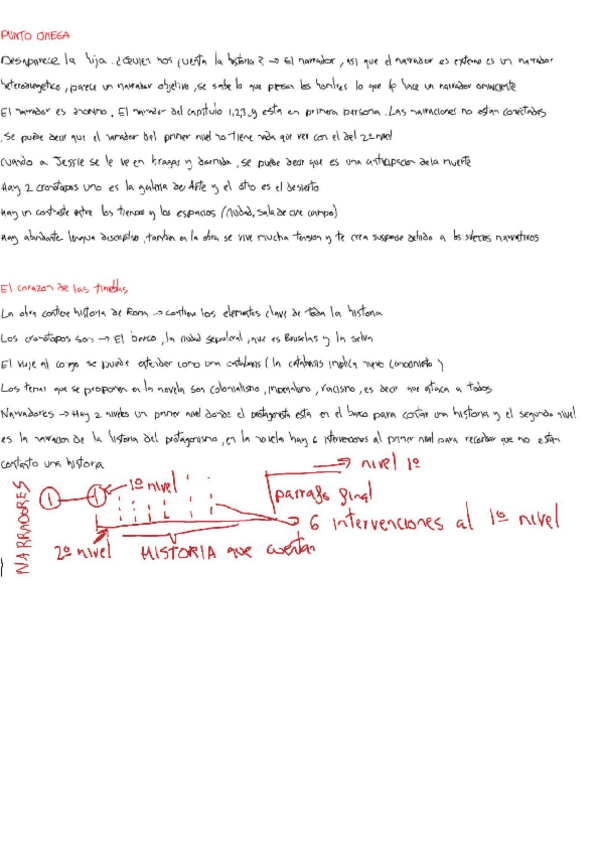 PUNTO OMEGA
Desaparece la hija. ¿Quien nos cuenta la historia? → El narrador, asi que el narrador es externo es un narrador
heterodiegetico, parece un narrador objetivo, se sabe lo que piensan los hombres lo que lo hace un narrador omnisciente
El narrador es anonimo. El narrador del capitulo 1,2,3,y esta en primera persona. Las narraciones no estan conectadas
, se puede decir que el narrador del primer nivel no tiene nada que ver con el del 2º nivel
Cuando a Jessie se le ve en bragas y dormida, se puede decir que es una anticipacion de la muerte
Hay 2 cronotopos uno es la galeria de Arte y el otro es el desierto
Hay un contraste entre los tiempos y los espacios (ciudad, sala de cine campo)
Hay abundante lengua discursiva, tambien en la obra se vive mucha tension y te crea suspense debido a los silencios narrativos
El corazon de las tinieblas
La obra contiene historia de Roma → contiene los elementos clave de toda la historia
Los cronotopos son → El barco, la ciudad sepulcral, que es Bruselas y la selva
El viaje al congo se puede entender como una catabasis (la catabasis implica nuevo conocimiento)
Los temas que se proponen en la novela son colonialismo, imperialismo, racismo, es decir que ataca a todos
Narradores → Hay 2 niveles un primer nivel donde el protagonista esta en el barco para contar una historia y el segundo nivel
es la narracion de la historia del protagonismo, en la novela hay 6 intervenciones al primer nivel para recordar que no estan
contanto una historia
NARRADORES
1
1
1º nivel
nivel 1º
parrafo final
6 intervenciones al 1º nivel
2º nivel
HISTORIA que cuentan